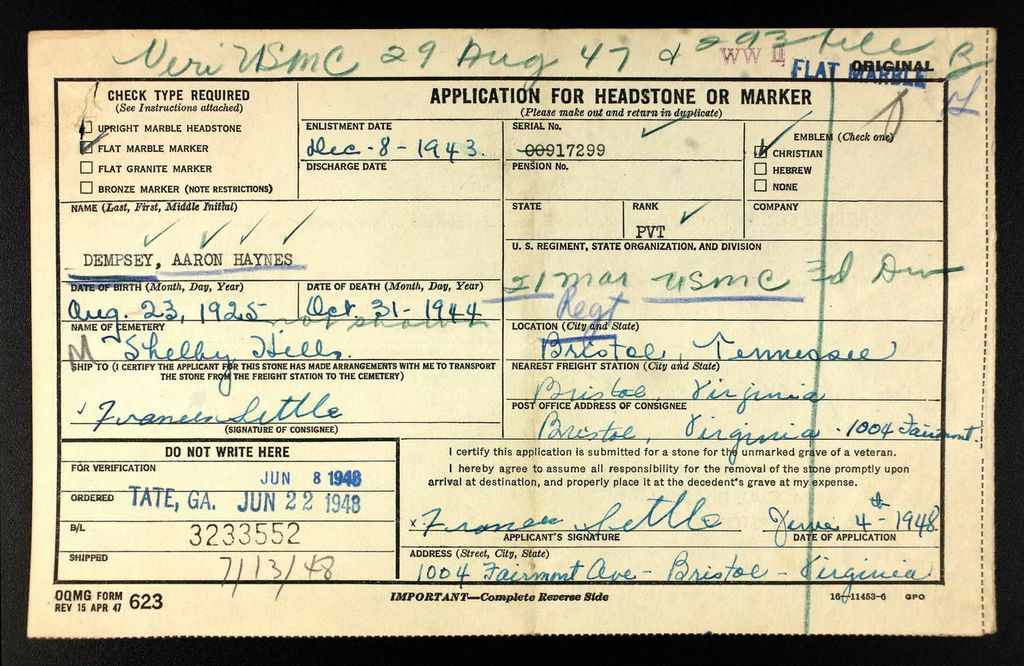 Veri USMC 29 Aug 47 &
WW II
FLAT MARBLE
ORIGINAL
CHECK TYPE REQUIRED
(See Instructions attached)
UPRIGHT MARBLE HEADSTONE
FLAT MARBLE MARKER
FLAT GRANITE MARKER
BRONZE MARKER (NOTE RESTRICTIONS)
APPLICATION FOR HEADSTONE OR MARKER
(Please make out and return in duplicate)
ENLISTMENT DATE
Dec-8-1943.
DISCHARGE DATE
SERIAL No.
00917299
PENSION No.
EMBLEM (Check one)
CHRISTIAN
HEBREW
NONE
NAME (Last, First, Middle Initial)
DEMPSEY, AARON HAYNES
STATE
RANK
PVT
COMPANY
U. S. REGIMENT, STATE ORGANIZATION, AND DIVISION
21 Mar USMC 3d Div
Regt
DATE OF BIRTH (Month, Day, Year)
Aug. 23, 1925
DATE OF DEATH (Month, Day, Year)
Oct. 31-1944
not shown
NAME OF CEMETERY
M Shelby Hills.
LOCATION (City and State)
Bristol, Tennessee
SHIP TO (I CERTIFY THE APPLICANT FOR THIS STONE HAS MADE ARRANGEMENTS WITH ME TO TRANSPORT
THE STONE FROM THE FREIGHT STATION TO THE CEMETERY)
Frances Settle
(SIGNATURE OF CONSIGNEE)
NEAREST FREIGHT STATION (City and State)
Bristol, Virginia
POST OFFICE ADDRESS OF CONSIGNEE
Bristol, Virginia - 1004 Fairmont
DO NOT WRITE HERE
FOR VERIFICATION
JUN 8 1948
ORDERED
TATE, GA. JUN 22 1948
B/L
3233552
SHIPPED
7/13/48
I certify this application is submitted for a stone for the unmarked grave of a veteran.
I hereby agree to assume all responsibility for the removal of the stone promptly upon
arrival at destination, and properly place it at the decedent's grave at my expense.
x Frances Settle June 4th-1948
APPLICANT'S SIGNATURE DATE OF APPLICATION
ADDRESS (Street, City, State)
1004 Fairmont Ave - Bristol - Virginia
OQMG FORM
REV 15 APR 47 623
IMPORTANT—Complete Reverse Side
16—11453-6 GPO